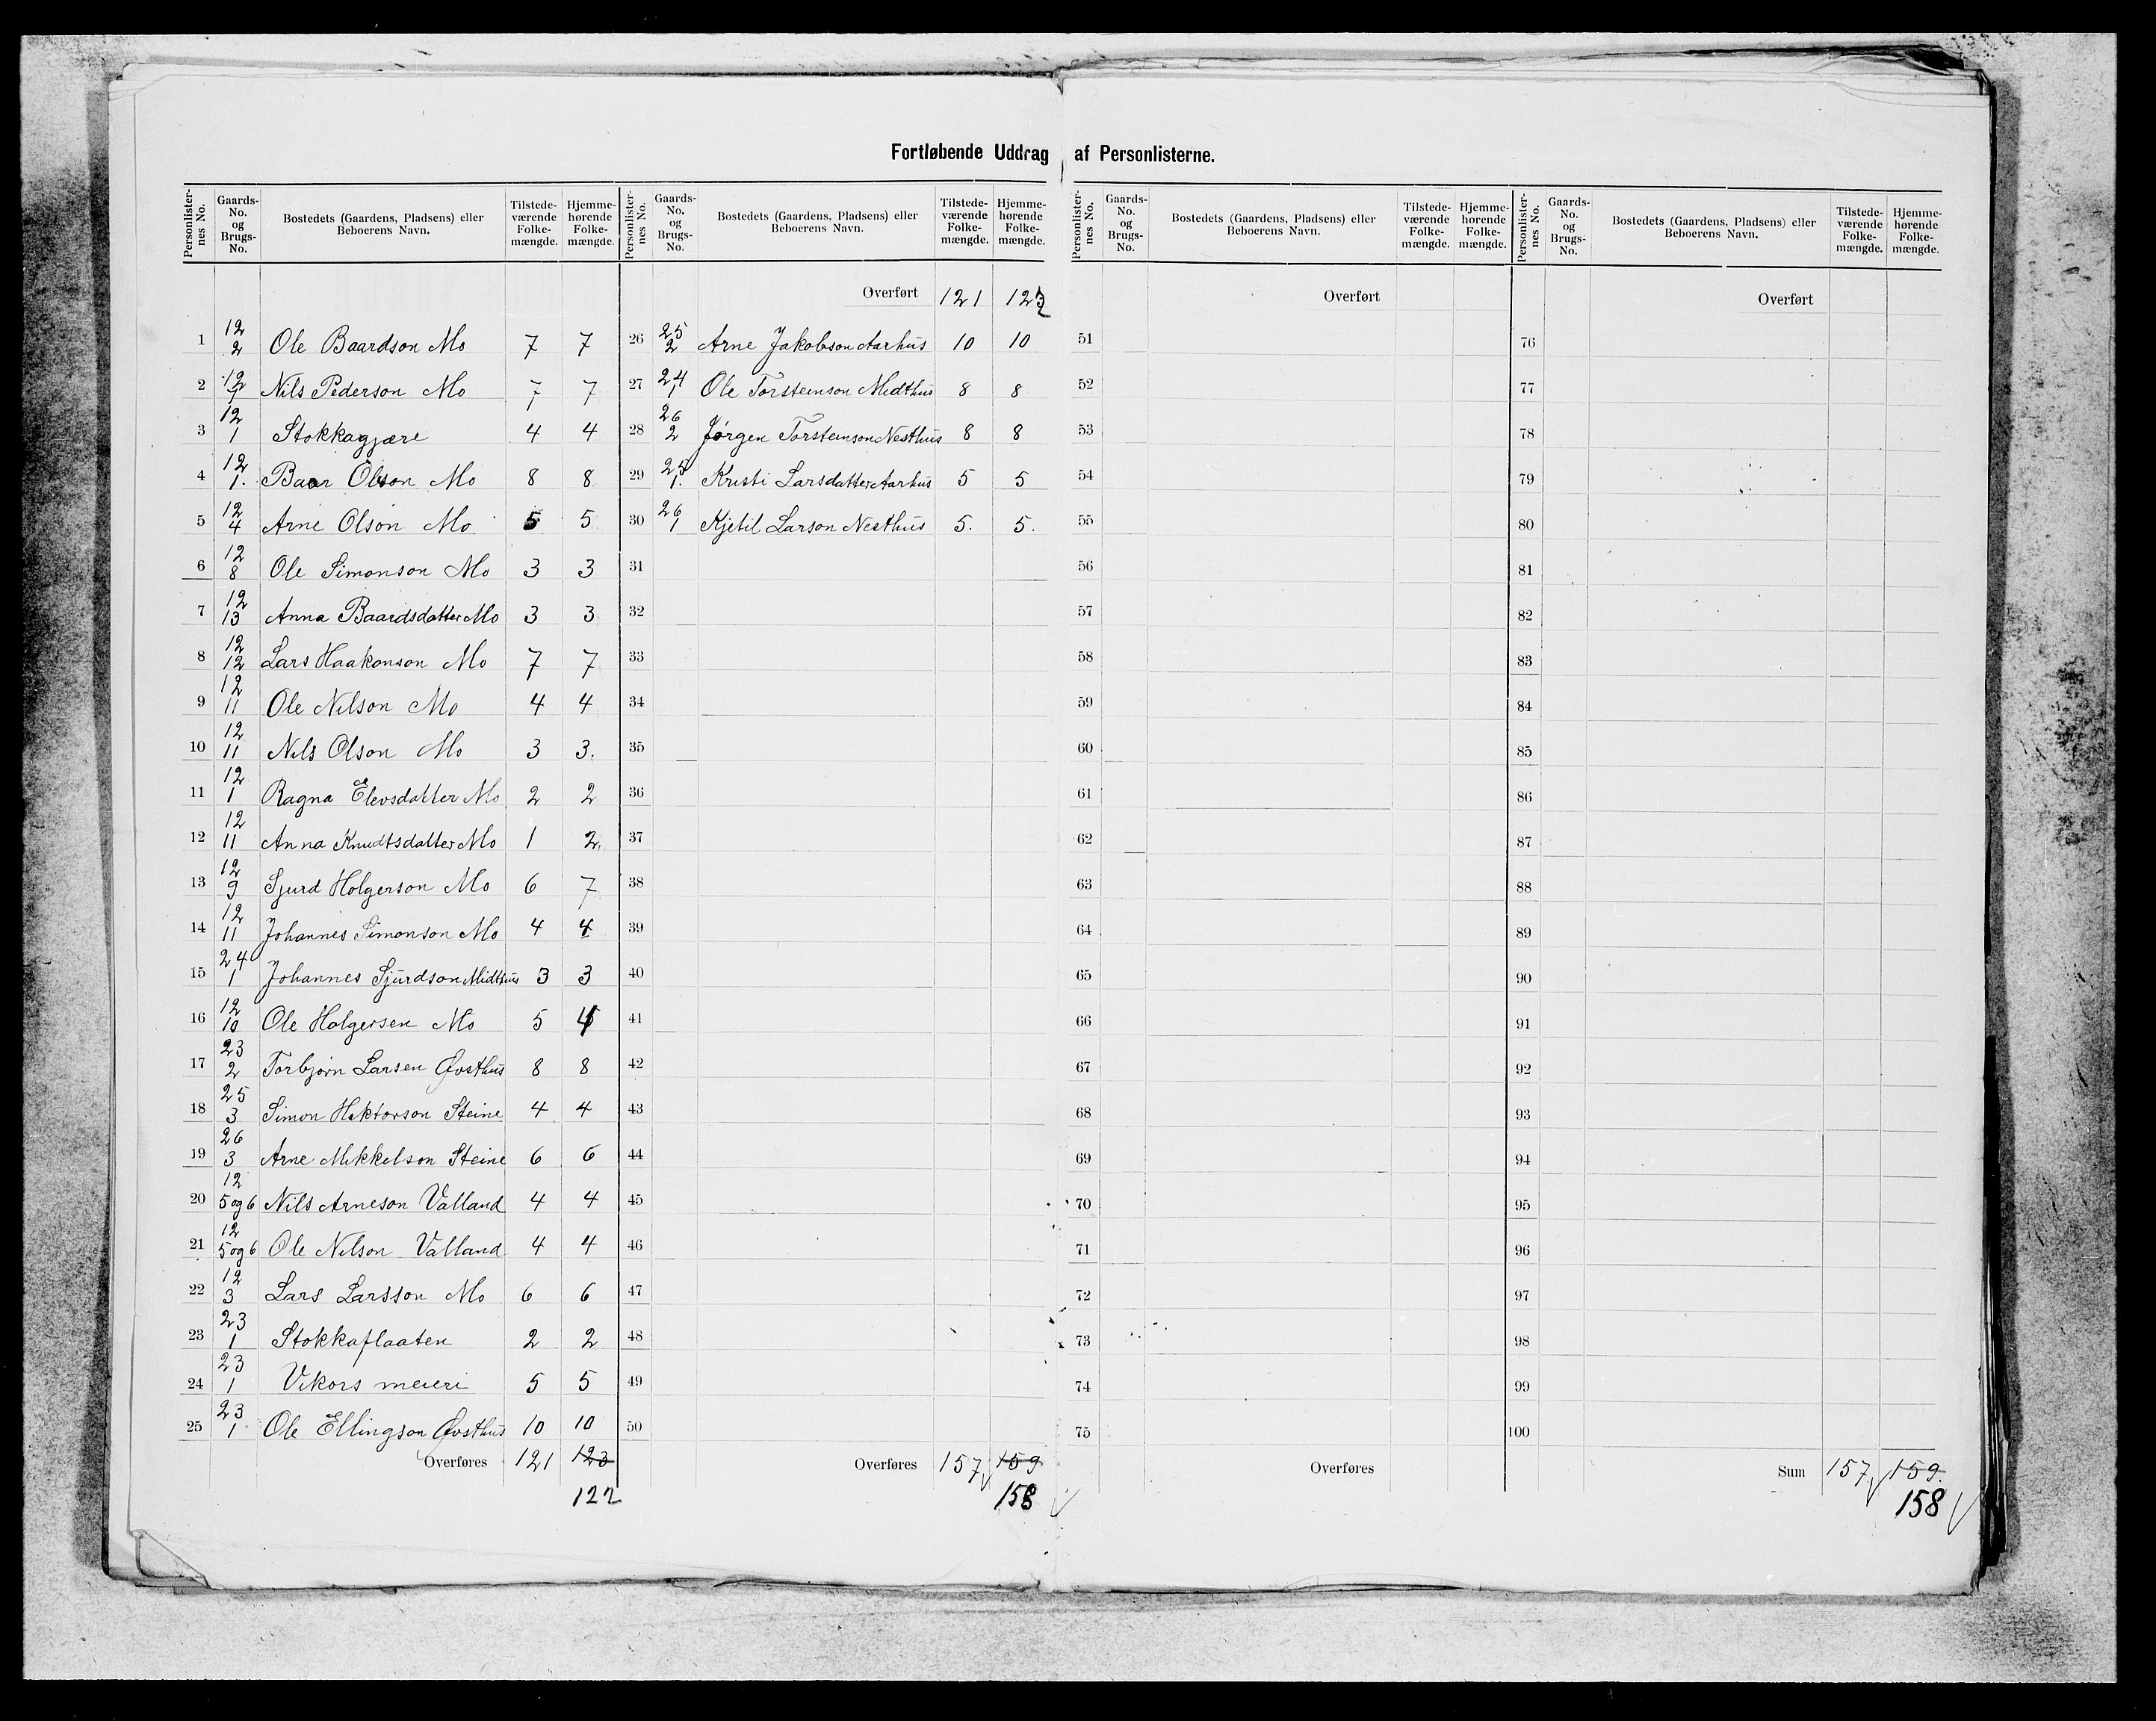 Fortløbende Uddrag af Personlisterne.
Personlister-nes No. Gaards-No. og Brugs-No. Bostedets (Gaardens, Pladsens) eller Beboerens Navn. Tilstede-værende Folke-mængde. Hjemme-hørende Folke-mængde.
1 12 2 Ole Baardson Mo 7 7
2 12 7 Nils Pederson Mo 7 7
3 12 1 Stokkagjære 4 4
4 12 1. Baar Olson Mo 8 8
5 12 4 Arne Olson Mo 5 5
6 12 8 Ole Simonson Mo 3 3
7 12 13 Anna Baardsdatter Mo 3 3
8 12 12 Lars Haakonson Mo 7 7
9 12 11 Ole Nilson Mo 4 4
10 12 11 Nils Olson Mo 3 3.
11 12 1 Ragna Elevsdatter Mo 2 2
12 12 11 Anna Knudtsdatter Mo 1 2
13 12 9 Sjurd Holgerson Mo 6 7
14 12 11 Johannes Simonson Mo 4 4
15 24 1 Johannes Sjurdson Midthus 3 3
16 12 10 Ole Holgersen Mo 5 4
17 23 2 Torbjørn Larsen Øvsthus 8 8
18 25 3 Simon Hektorson Steine 4 4
19 26 3 Arne Mikkelson Steine 6 6
20 12 5 og 6 Nils Arneson Valland 4 4
21 12 5 og 6 Ole Nilson Valland 4 4
22 12 3 Lars Larsson Mo 6 6
23 23 1 Stokkaflaaten 2 2
24 23 1 Vikors meieri 5 5
25 23 1 Ole Ellingson Øvsthus 10 10
Overføres 121 123
122
Personlister-nes No. Gaards-No. og Brugs-No. Bostedets (Gaardens, Pladsens) eller Beboerens Navn. Tilstede-værende Folke-mængde. Hjemme-hørende Folke-mængde.
Overført 121 122
26 25 2 Arne Jakobson Aarhus 10 10
27 24 1 Ole Torsteinson Midthus 8 8
28 26 2 Jørgen Torsteinson Nesthus 8 8
29 25 1. Kristi Larsdatter Aarhus 5 5
30 26 1 Kjetil Larson Nesthus 5. 5.
31
32
33
34
35
36
37
38
39
40
41
42
43
44
45
46
47
48
49
50
Overføres 157 159
158
Personlister-nes No. Gaards-No. og Brugs-No. Bostedets (Gaardens, Pladsens) eller Beboerens Navn. Tilstede-værende Folke-mængde. Hjemme-hørende Folke-mængde.
Overført
51
52
53
54
55
56
57
58
59
60
61
62
63
64
65
66
67
68
69
70
71
72
73
74
75
Overføres
Personlister-nes No. Gaards-No. og Brugs-No. Bostedets (Gaardens, Pladsens) eller Beboerens Navn. Tilstede-værende Folke-mængde. Hjemme-hørende Folke-mængde.
Overført
76
77
78
79
80
81
82
83
84
85
86
87
88
89
90
91
92
93
94
95
96
97
98
99
100
Sum 157 159.
158